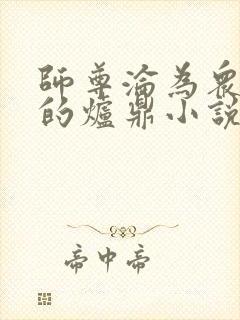 師尊淪為眾
的爐鼎小說
帝中帝